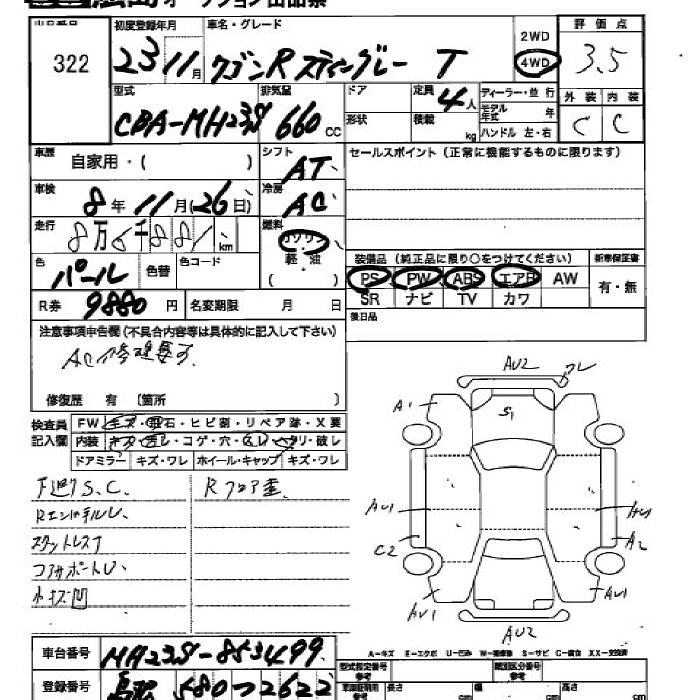 オークション出品票
322
初度登録年月
23年11月
車名・グレード
ワゴンR スティングレー T
2WD
4WD
評価点
3.5
型式
CBA-MH23S
排気量
660 CC
ドア
形状
定員
4人
積載
kg
ディーラー・並行
モデル年式
年
ハンドル 左・右
外装
内装
C
C
車歴
自家用・( )
シフト
AT
セールスポイント(正常に機能するものに限ります)
車検
8年11月(26日)
冷房
AC
走行
8万6千881km
燃料
ガソリン
軽・油
( )
色
パール
色替
色コード
装備品(純正品に限り○をつけてください)
新車保証書
PS
PW
ABS
エアB
AW
有・無
SR
ナビ
TV
カワ
R券
9880円
名変期限
月
日
後日品
注意事項申告欄(不具合内容等は具体的に記入して下さい)
AC修理要す
修復歴 有 〔箇所 〕
検査員
記入欄
FW
キズ・飛石・ヒビ割・リペア跡・X要
内装
ドアミラー
キズ・ワレ
ホイール・キャップ
キズ・ワレ
下廻りS.C.
Rフロア歪
小キズ凹
AU2
ワレ
A1
S1
AU1
C2
A2
AU1
AU1
AU2
車台番号
MH23S-853499
登録番号
580つ2622
A-キズ E-エクボ U-凹み W-補修跡 S-サビ C-腐食 XX-交換済
型式指定番号
参考
類別区分番号
参考
長さ
cm
幅
cm
高さ
cm